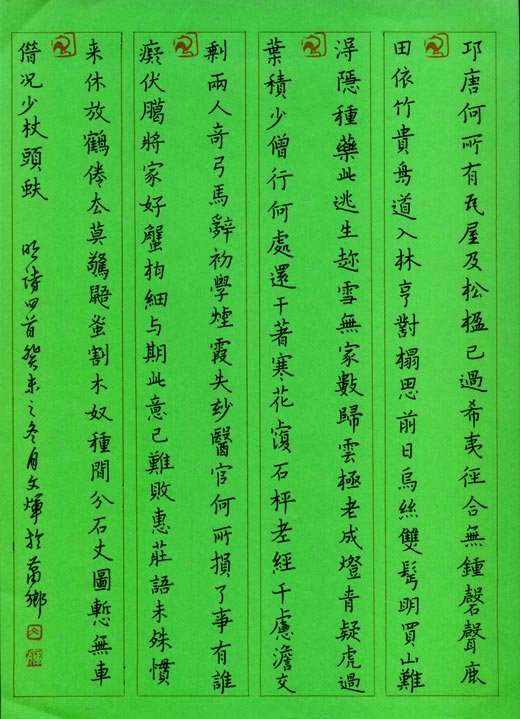 邛唐何所有瓦屋及松楹已過希夷徑合無鍾磬聲
田依竹貴道入林亨對榻思前日烏絲雙明買山難
淂隱種藥此逃生趂雪無家數歸雲極老成燈青疑虎過
葉積少僧行何處還干著寒花石枰孝經千慮澹交
剩兩人奇弓馬辭初學煙霞失玅醫官何所損了事有誰
癡伏臈將家好蟹杓細与期此意已難敗惠莊語未殊慣
来休放鶴倦厺莫驚鼯割木奴種間分石丈圖慙無車
僭况少杖頭蚨
明詩四首癸未之冬月文煇於鄉